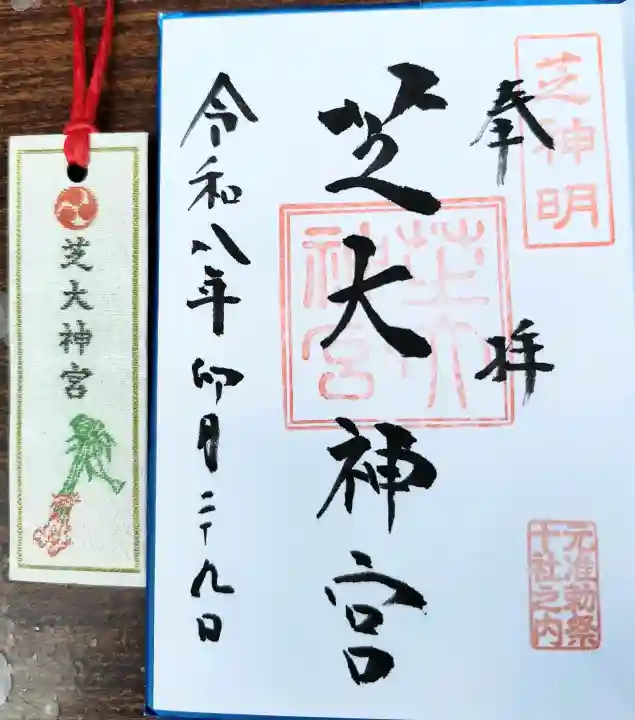 芝大神宮
芝神明
奉拝
芝大神宮
芝大神宮
元准勅祭
十社之内
令和八年卯月二十九日